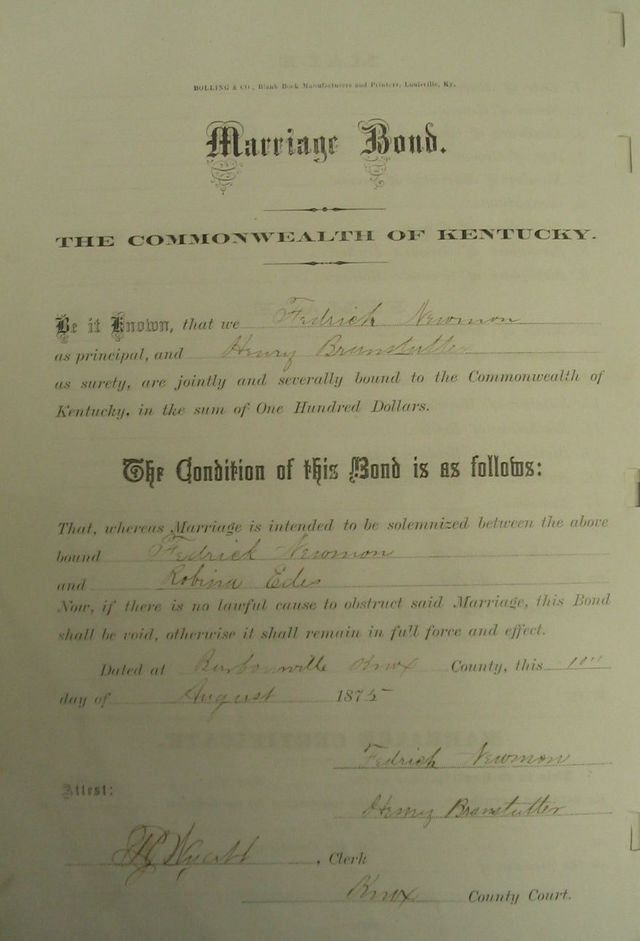 BOLLING & CO., Blank Book Manufacturers and Printers, Louisville, Ky.
Marriage Bond.
THE COMMONWEALTH OF KENTUCKY.
Be it Known, that we Fedrick Newmon
as principal, and Henry Branstutter
as surety, are jointly and severally bound to the Commonwealth of
Kentucky, in the sum of One Hundred Dollars.
The Condition of this Bond is as follows:
That, whereas Marriage is intended to be solemnized between the above
bound Fedrick Newmon
and Robina Edes
Now, if there is no lawful cause to obstruct said Marriage, this Bond
shall be void, otherwise it shall remain in full force and effect.
Dated at Barbourville Knox County, this
day of August 1875
Fedrick Newmon
Attest:
Henry Branstutter
Wyatt, Clerk
Knox County Court.